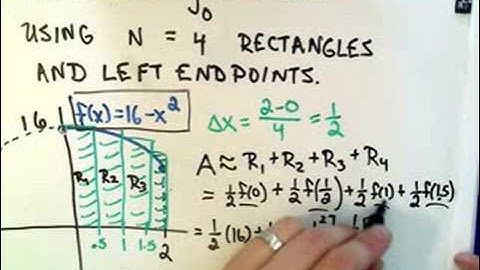 ∫₀
USING N = 4 RECTANGLES
AND LEFT ENDPOINTS.
16 f(x)=16-x²
Δx = 2-0/4 = 1/2
A ≈ R₁ + R₂ + R₃ + R₄
R₁ R₂ R₃
= ½ f(0) + ½ f(½) + ½ f(1) + ½ f(1.5)
.5 1 1.5 2
= ½ (16) +